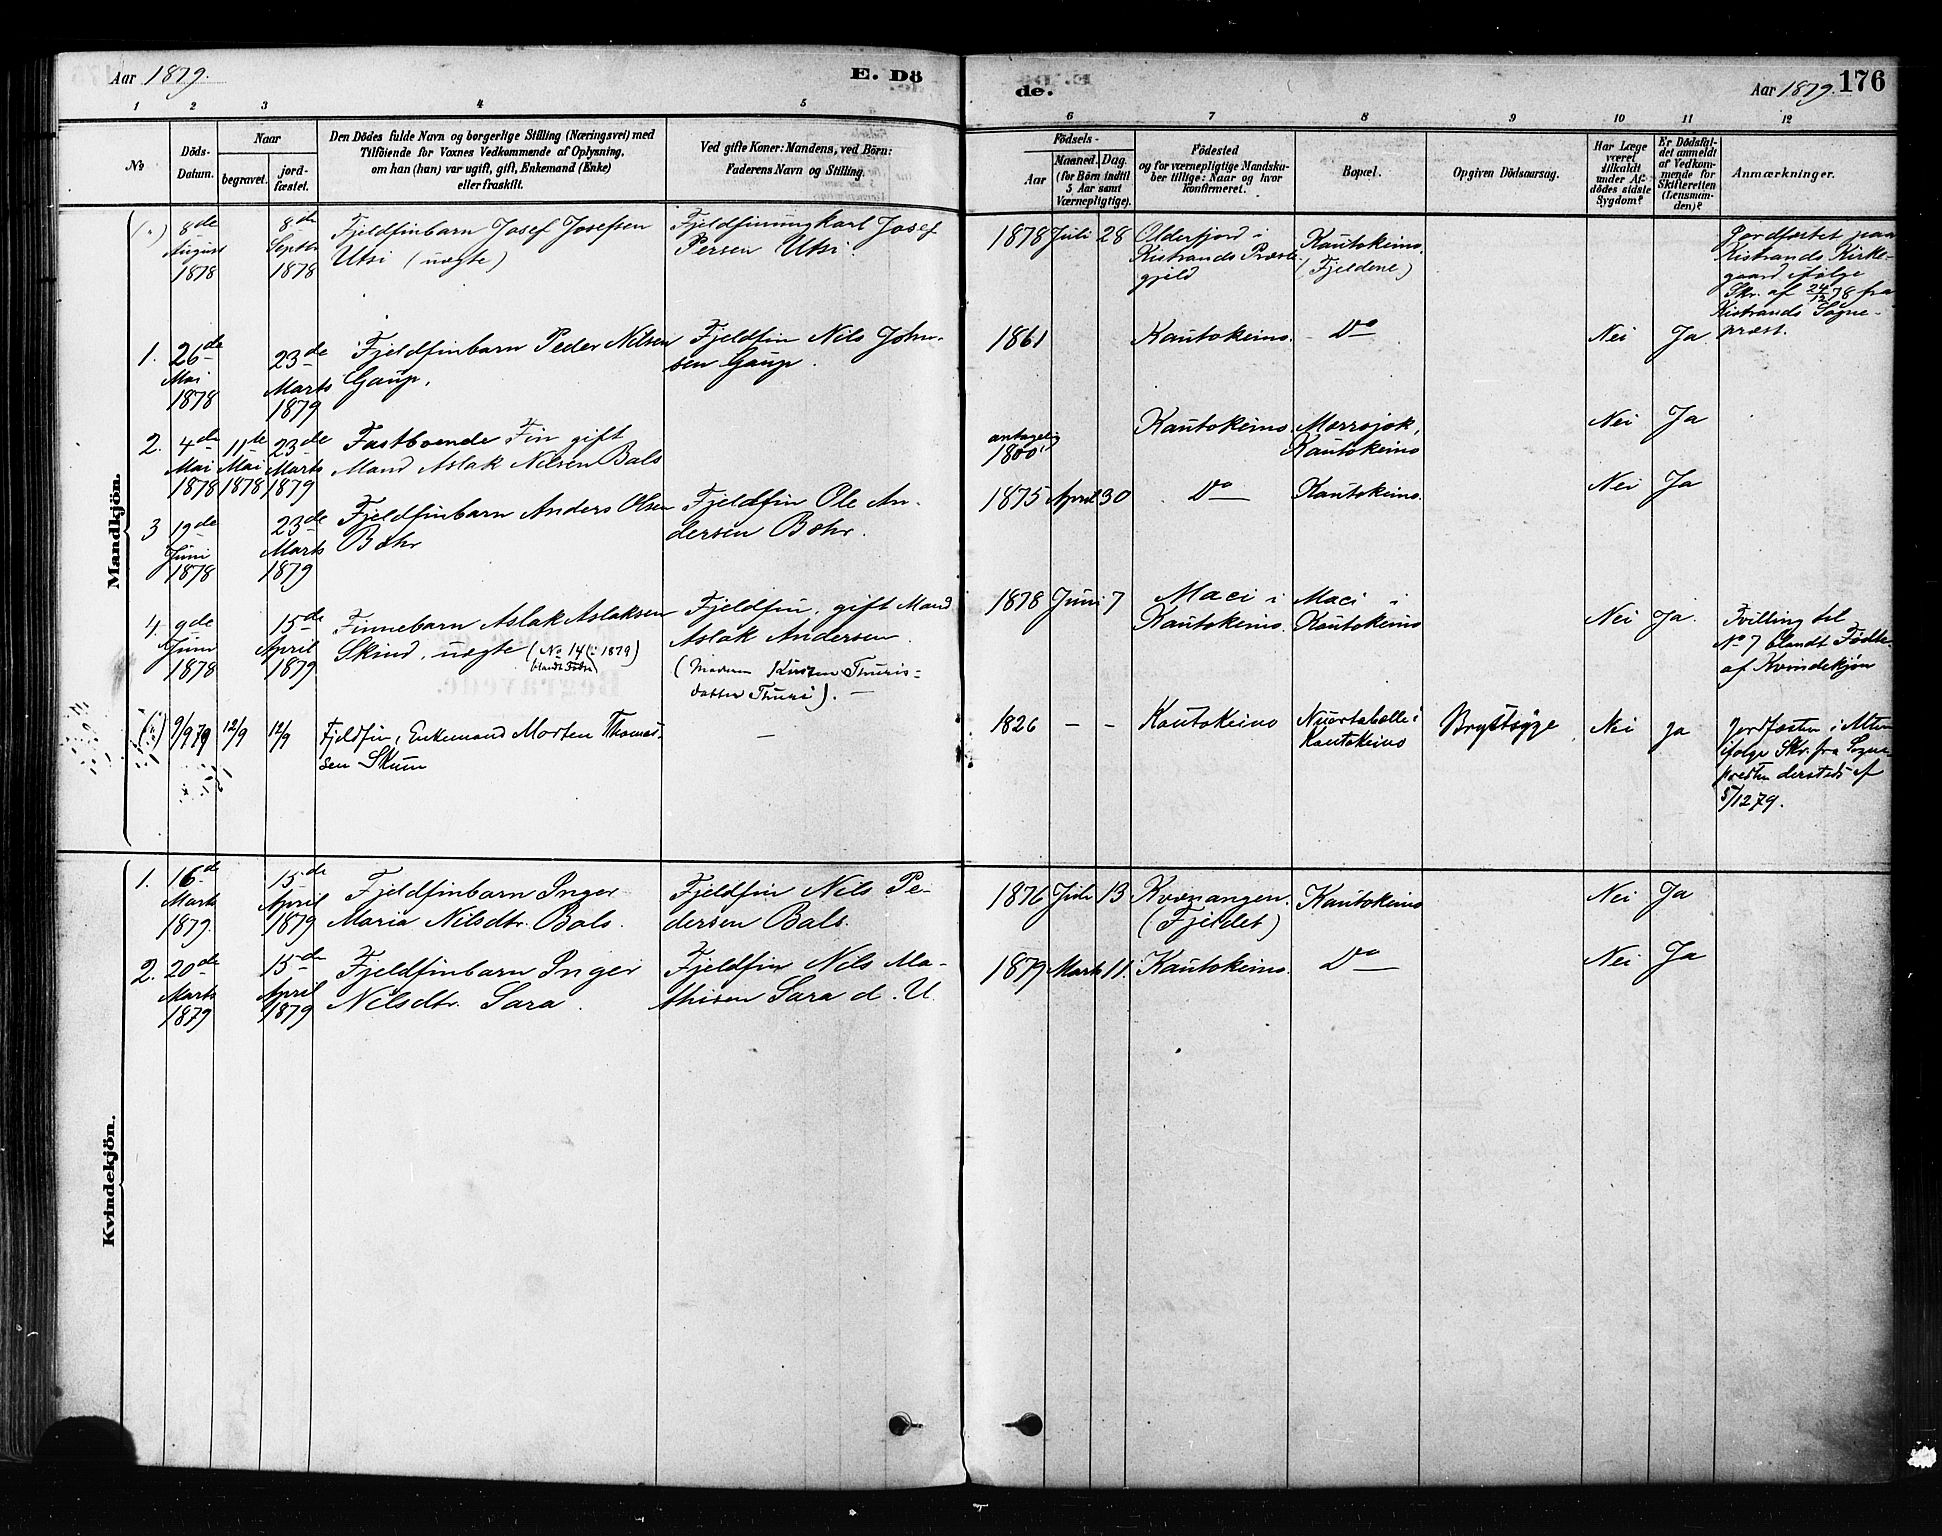 Aar 1879.
E. Dö
de.
Aar 1879.
176
1 2 3 4 5 6 7 8 9 10 11 12
No
Döds-
Datum.
Naar
begravet.
jord-
fæstet.
Den Dödes fulde Navn og borgerlige Stilling (Næringsvei) med
Tilföiende for Voxnes Vedkommende af Oplysning,
om han (hun) var ugift, gift, Enkemand (Enke)
eller fraskilt.
Ved gifte Koner: Mandens, ved Börn:
Faderens Navn og Stilling.
Födsels-
Aar
Maaned. Dag.
(for Börn indtil
5 Aar samt
Værnepligtige).
Födested
og for værnepligtige Mandska-
ber tillige: Naar og hvor
konfirmeret.
Bopæl.
Opgiven Dödsaarsag.
Har Læge
været
tilkaldt
under Af-
dödes sidste
Sygdom?
Er Dödsfal-
det anmeldt
af Vedkom-
mende for
Skifteretten
(Lensman-
den)?
Anmærkninger.
Mandkjön.
8de
August
1878
8de
Septbr
1878
Fjeldfinbarn Josef Josefsen
Utsi (uægte)
Fjeldfinungkarl Josef
Persen Utsi.
1878 Juli 28
Olderfjord i
Kistrands Præste-
gjeld
Kautokeino
(Fjeldene)
Jordfæstet paa
Kistrands Kirke-
gaard ifølge
Skr. af 24/12 78 fra
Kistrands Sogne-
præst.
1.
26de
Mai
1878
23de
Marts
1879
Fjeldfinbarn Peder Nilsen
Gaup.
Fjeldfin Nils John-
sen Gaup.
1861
Kautokeino.
Do
Nei
Ja
2.
4de
Mai
1878
11te
Mai
1878
23de
Marts
1879
Fastboende Fin gift
Mand Aslak Nilsen Bals
antagelig
1800
Kautokeino.
Kautokeino
Nei
Ja
3
19de
Juni
1878
23de
Marts
1879
Fjeldfinbarn Anders Olsen
Bæhr
Fjeldfin Ole An-
dersen Bæhr.
1875 April 30
Do
Kautokeino.
Nei
Ja
4.
9de
Juni
1878
15de
April
1879
Finnebarn Aslak Aslaksen
Skind, uægte (No 14 i 1879)
blandt Fødte
Fjeldfin, gift Mand
Aslak Andersen.
(Moderen Kirsten Thuris-
datter Thuri). —
1878 Juni 7
Maci i
Kautokeino.
Maci i
Kautokeino
Nei
Ja.
Tvilling til
No 7 blandt Fødte
af Kvindekjøn
9/9 79
12/9
12/9
Fjeldfin, Enkemand Morten Thomas-
sen Skum
—
1826 — —
Kautokeino
Kautokeino
Brystsyge
Nei
Ja
Jordfæstet i Alten
ifølge Skr. fra Sogne-
presten dersteds af
5/12 79.
Kvindekjön.
1.
16de
Marts
1879.
15de
April
1879
Fjeldfinbarn Inger
Maria Nilsdtr. Bals.
Fjeldfin Nils Pe-
dersen Bals.
1876 Juli 13
Kvænangen.
(Fjeldet)
Kautokeino
Nei
Ja
2.
20de
Marts
1879
15de
April
1879
Fjeldfinbarn Inger
Nilsdtr. Sara.
Fjeldfin Nils Ma-
thisen Sara d. U.
1879 Marts 11.
Kautokeino.
Do
Nei
Ja